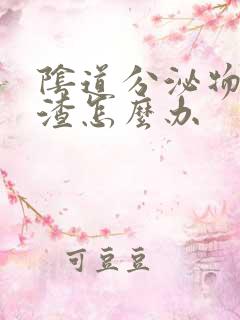 陰道分泌物
渣怎麼办
可豆豆